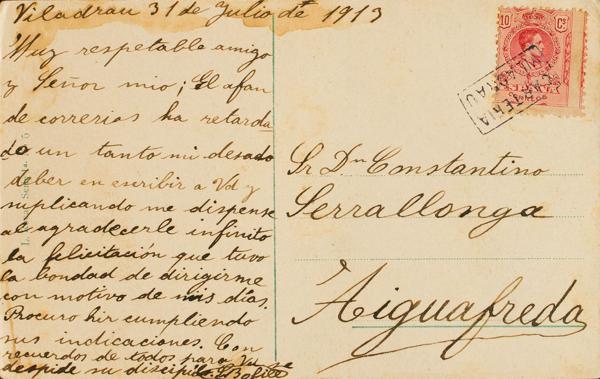 Viladrau 31 de Julio de 1913
Muy respetable amigo
y Señor mio; El afan
de correrias ha retarda-
do un tanto mi desado
deber en escribir a Vd y
suplicando me dispense
al agradecerle infinito
la felicitación que tuvo
la bondad de dirigirme
con motivo de mis días.
Procuro hir cumpliendo
sus indicaciones. Con
recuerdos de todos para Vd
despide su discipulo
10 Cs
CARTERIA
VILADRAU
Sr Dn Constantino
Serrallonga
Aiguafreda